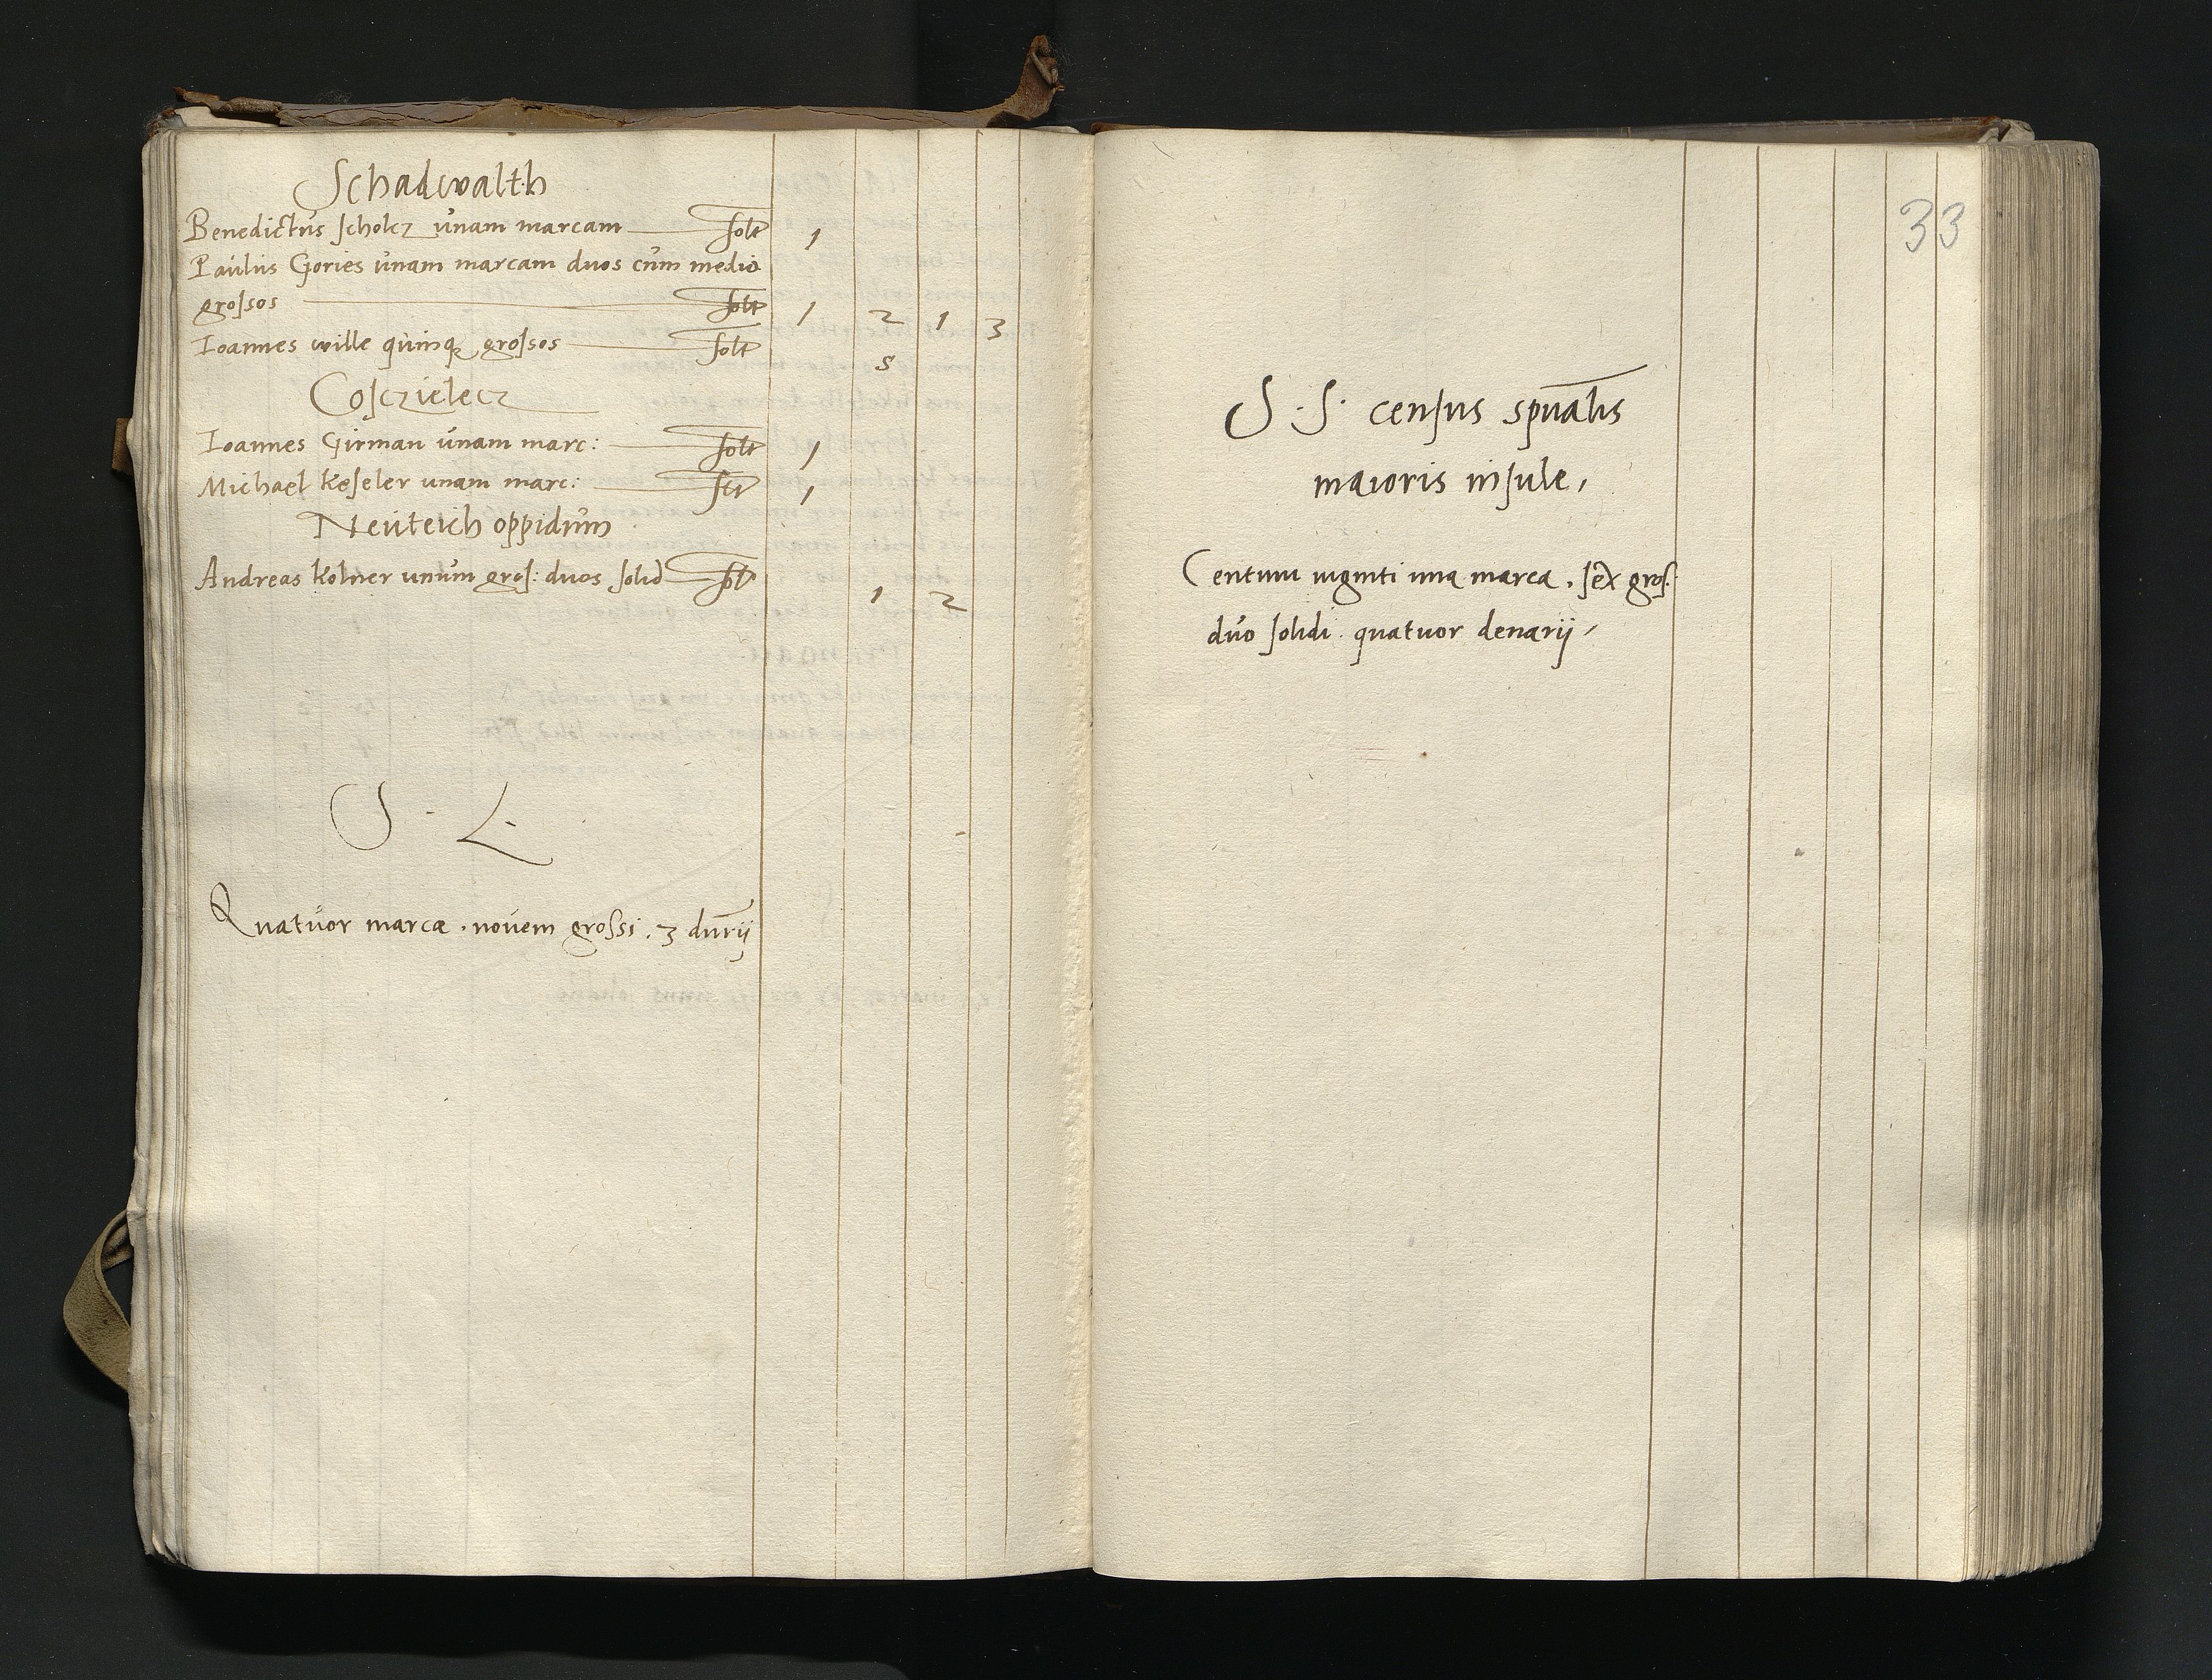 Schadwalth
Benedictus scholcz unam marcam solt 1
Paulus Gories unam marcam duos cum medio
grossos solt 1 2 1 3
Ioannes wille quinq grossos solt 5
Cosczielecz
Ioannes Girman unam marc: solt 1
Michael Keseler unam marc: 1
Neuteich oppidum
Andreas Kolner unum gros: duos solid solt 1 2
S. L.
Quatuor marcæ . novem grossi . 3 dnrii
33
S. S. census spualis
maioris insule,
Centum viginti una marca . sex gros.
duo solidi . quatuor denarij